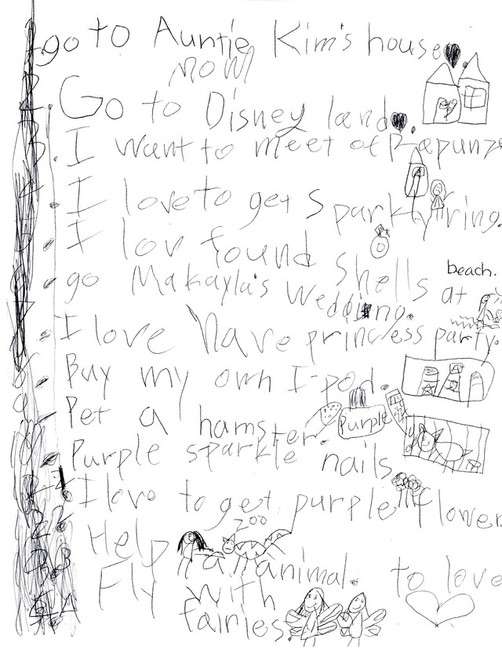 1. go to Auntie Kim's house
now
2. Go to Disney land.
3. I want to meet of Rapunz
4. I love to get sparkly ring.
I lov found shells at beach.
go Makayla's Wedding.
I love have princess party.
Buy my own I-pod.
9. Pet a hamster.
Purple
Purple sparkle nails
I love to get purple flower
zoo
Help a animal. to love
Fly with
fairies